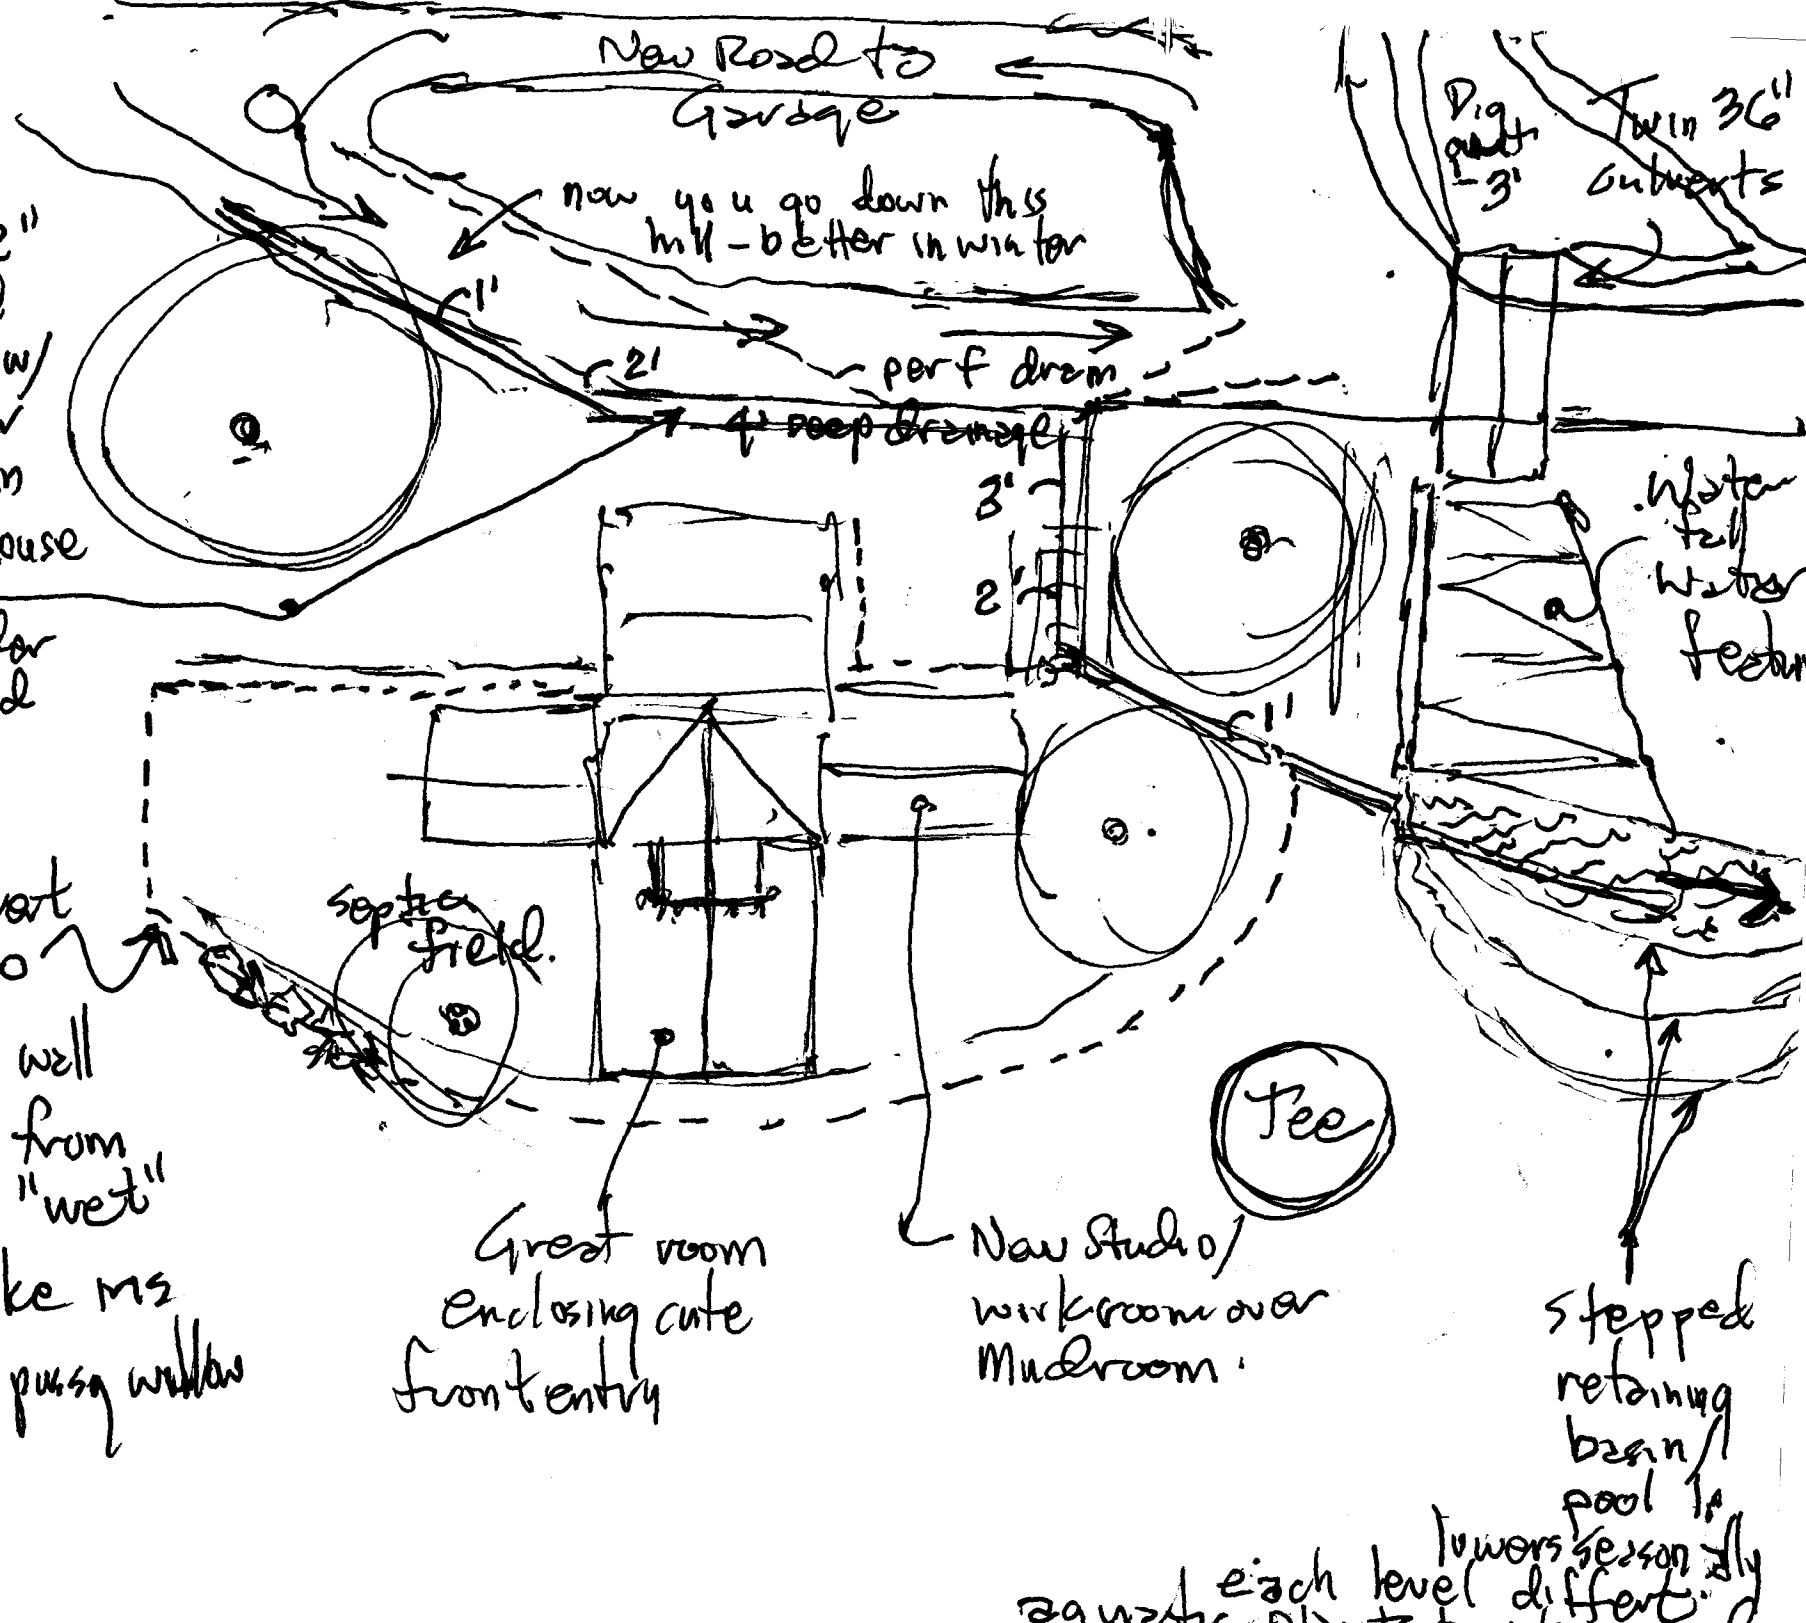 New Road to
Garage
Dig
out
-3'
Twin 36"
culverts
now you go down this
hill - better in winter
1'
2'
perf drain
4' deep drainage
w/
3'
2'
Water
fall
water
feature
ouse
for
1'
septic
field.
wall
from
"wet"
Tee
Great room
enclosing cute
front entry
New Studio/
workroom over
Mudroom.
ke ms
pussy willow
stepped
retaining
basin/
pool
lowers seasonally
each level different.